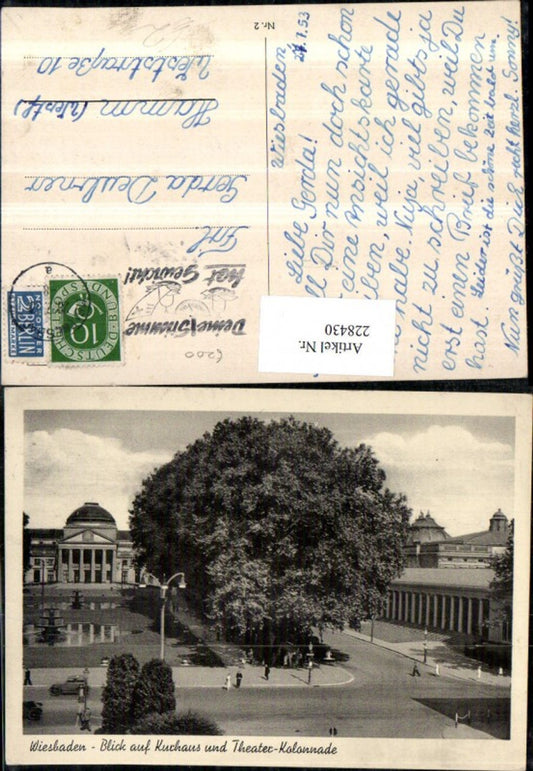 Wiesbaden
.1.53
Liebe Gerda!
ll Dir nun doch schon
eine Ansichtskarte
ben, weil ich gerade
e habe. Naja viel gibts ja
nicht zu schreiben, weil Du
erst einen Brief bekommen
hast. Leider ist die schöne Zeit bald um.
Nun grüßt Dich recht herzl. Sonny!
Nr. 2
Deine Stimme
hat Gewicht!
NOTOPFER
2 BERLIN
STEUERMARKE
DEUTSCHE BUNDESPOST
10
a
Frl.
Gerda
Hamm (Westf)
Weststraße 10
Artikel Nr.
228430
Wiesbaden - Blick auf Kurhaus und Theater-Kolonnade